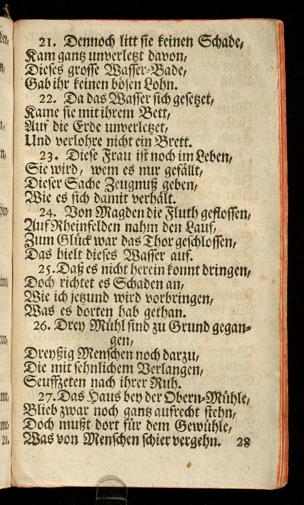 21. Dennoch litt sie keinen Schade,
Kam gantz unverletzt davon,
Dieses grosse Wasser-Bade,
Gab ihr keinen bösen Lohn.
22. Da das Wasser sich gesetzet,
Kame sie mit ihrem Bett,
Auf die Erde unverletzet,
Und verlohre nicht ein Brett.
23. Diese Frau ist noch im Leben,
Sie wird, wem es nur gefällt,
Dieser Sache Zeugnuß geben,
Wie es sich damit verhält.
24. Von Magden die Fluth geflossen,
Auf Rheinfelden nahm den Lauf,
Zum Glück war das Thor geschlossen,
Das hielt dieses Wasser auf.
25. Daß es nicht herein konnt dringen,
Doch richtet es Schaden an,
Wie ich jetzund wird vorbringen,
Was es dorten hab gethan.
26. Drey Mühl sind zu Grund gegan-
gen,
Dreyßig Menschen noch darzu,
Die mit sehnlichem Verlangen,
Seuffzeten nach ihrer Ruh.
27. Das Haus bey der Obern-Mühle,
Blieb zwar noch gantz aufrecht stehn,
Doch mußt dort für dem Gewühle,
Was von Menschen schier vergehn. 28